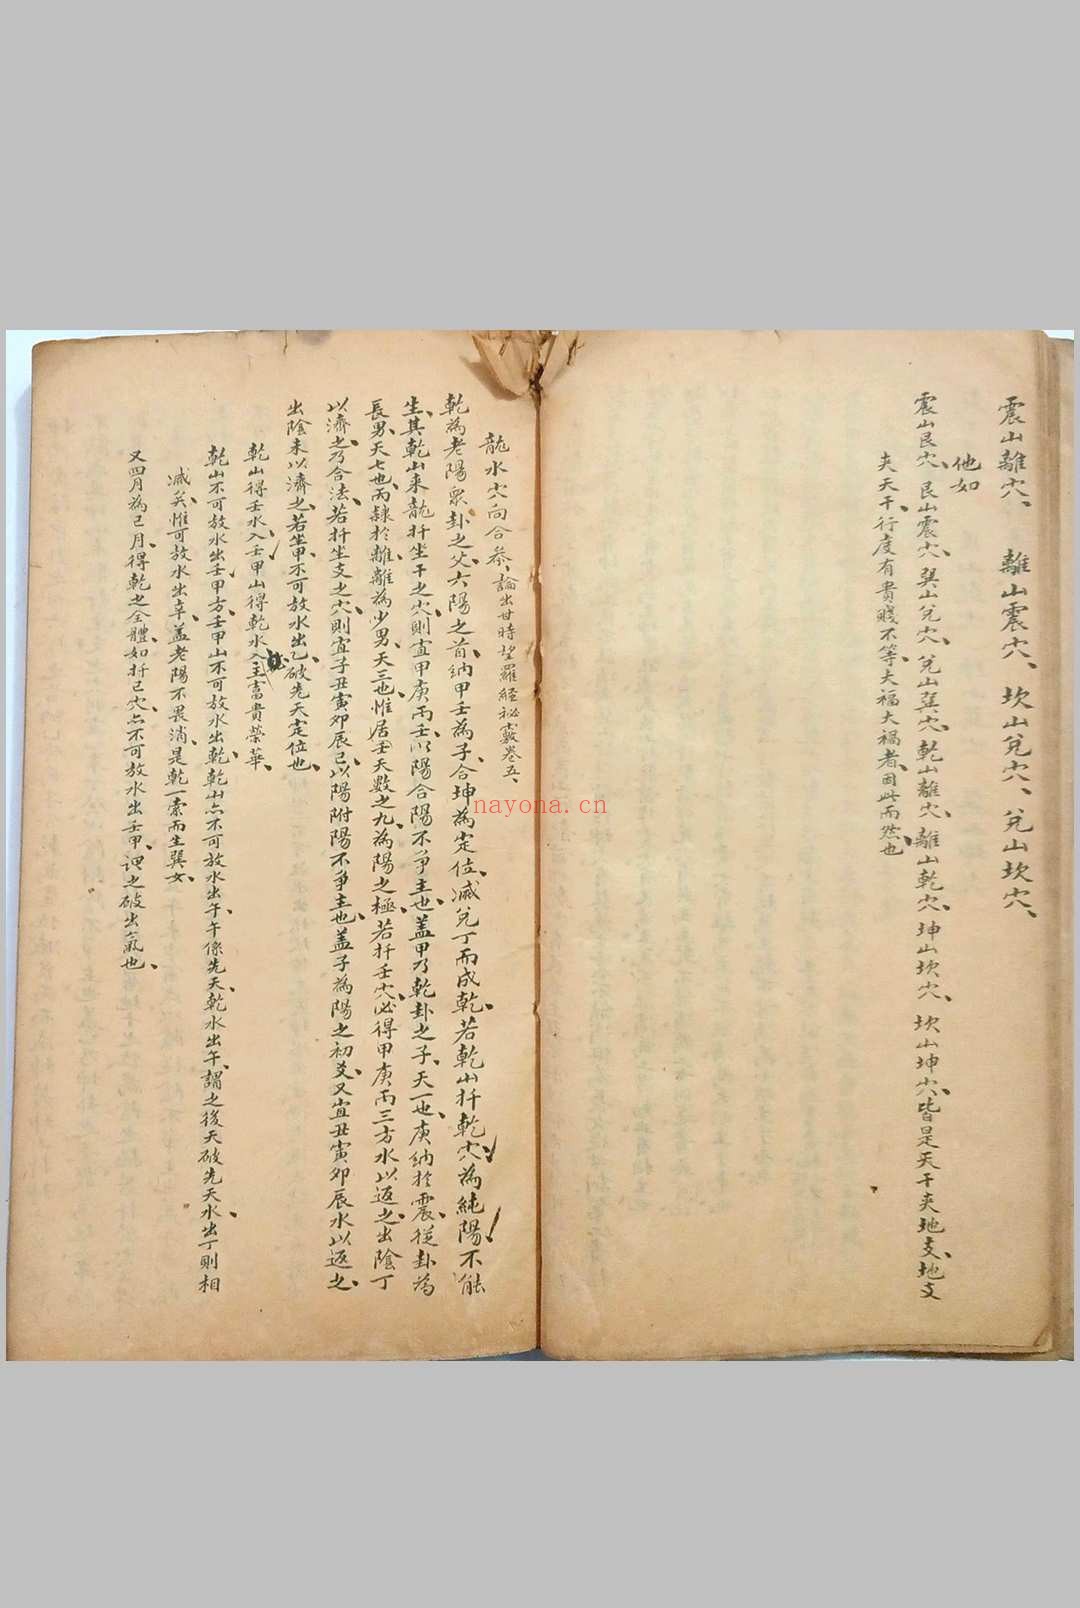 震山離穴、離山震穴、坎山兌穴、兌山坎穴、
他如
震山艮穴、艮山震穴、巽山兌穴、兌山巽穴、乾山離穴、離山乾穴、坤山坎穴、坎山坤穴、皆是天干夾地支、地支
夾天干、行度有貴賤不等、大福大禍者、因此而然也、
龍水穴向合參、論出甘時望羅經秘竅卷五、
乾為老陽眾卦之父、六陽之首、納甲壬為子、合坤為定位、滅兌丁而成乾、若乾山扦乾穴、為純陽不能
生、其乾山来龍扦坐干之穴、則宜甲庚丙壬、以陽合陽不爭主也、盖甲乃乾卦之子、天一也、庚納於震、從卦為
長男、天七也、丙隸於離、離為少男、天三也、惟居壬天數之九、為陽之極、若扦壬穴、必得甲庚丙三方水以返之、出陰丁
以濟之、乃合法、若扦坐支之穴、則宜子丑寅卯辰巳、以陽附陽不爭主也、盖子為陽之初爻、又宜丑寅卯辰水以返之、
出陰未以濟之、若坐甲、不可放水出乙、破先天定位也、
乾山得壬水、入壬甲山得乾水入主富貴榮華、
乾山不可放水出壬甲方、壬甲山不可放水出乾、乾山亦不可放水出午、午係先天乾、水出午、謂之後天破先天、水出丁則相
滅矣、惟可放水出辛、盖老陽不畏消、是乾一索而生巽女、
又四月為巳月、得乾之全體、如扦巳穴、亦不可放水出壬甲、謂之破出氣也、
nayona.cn